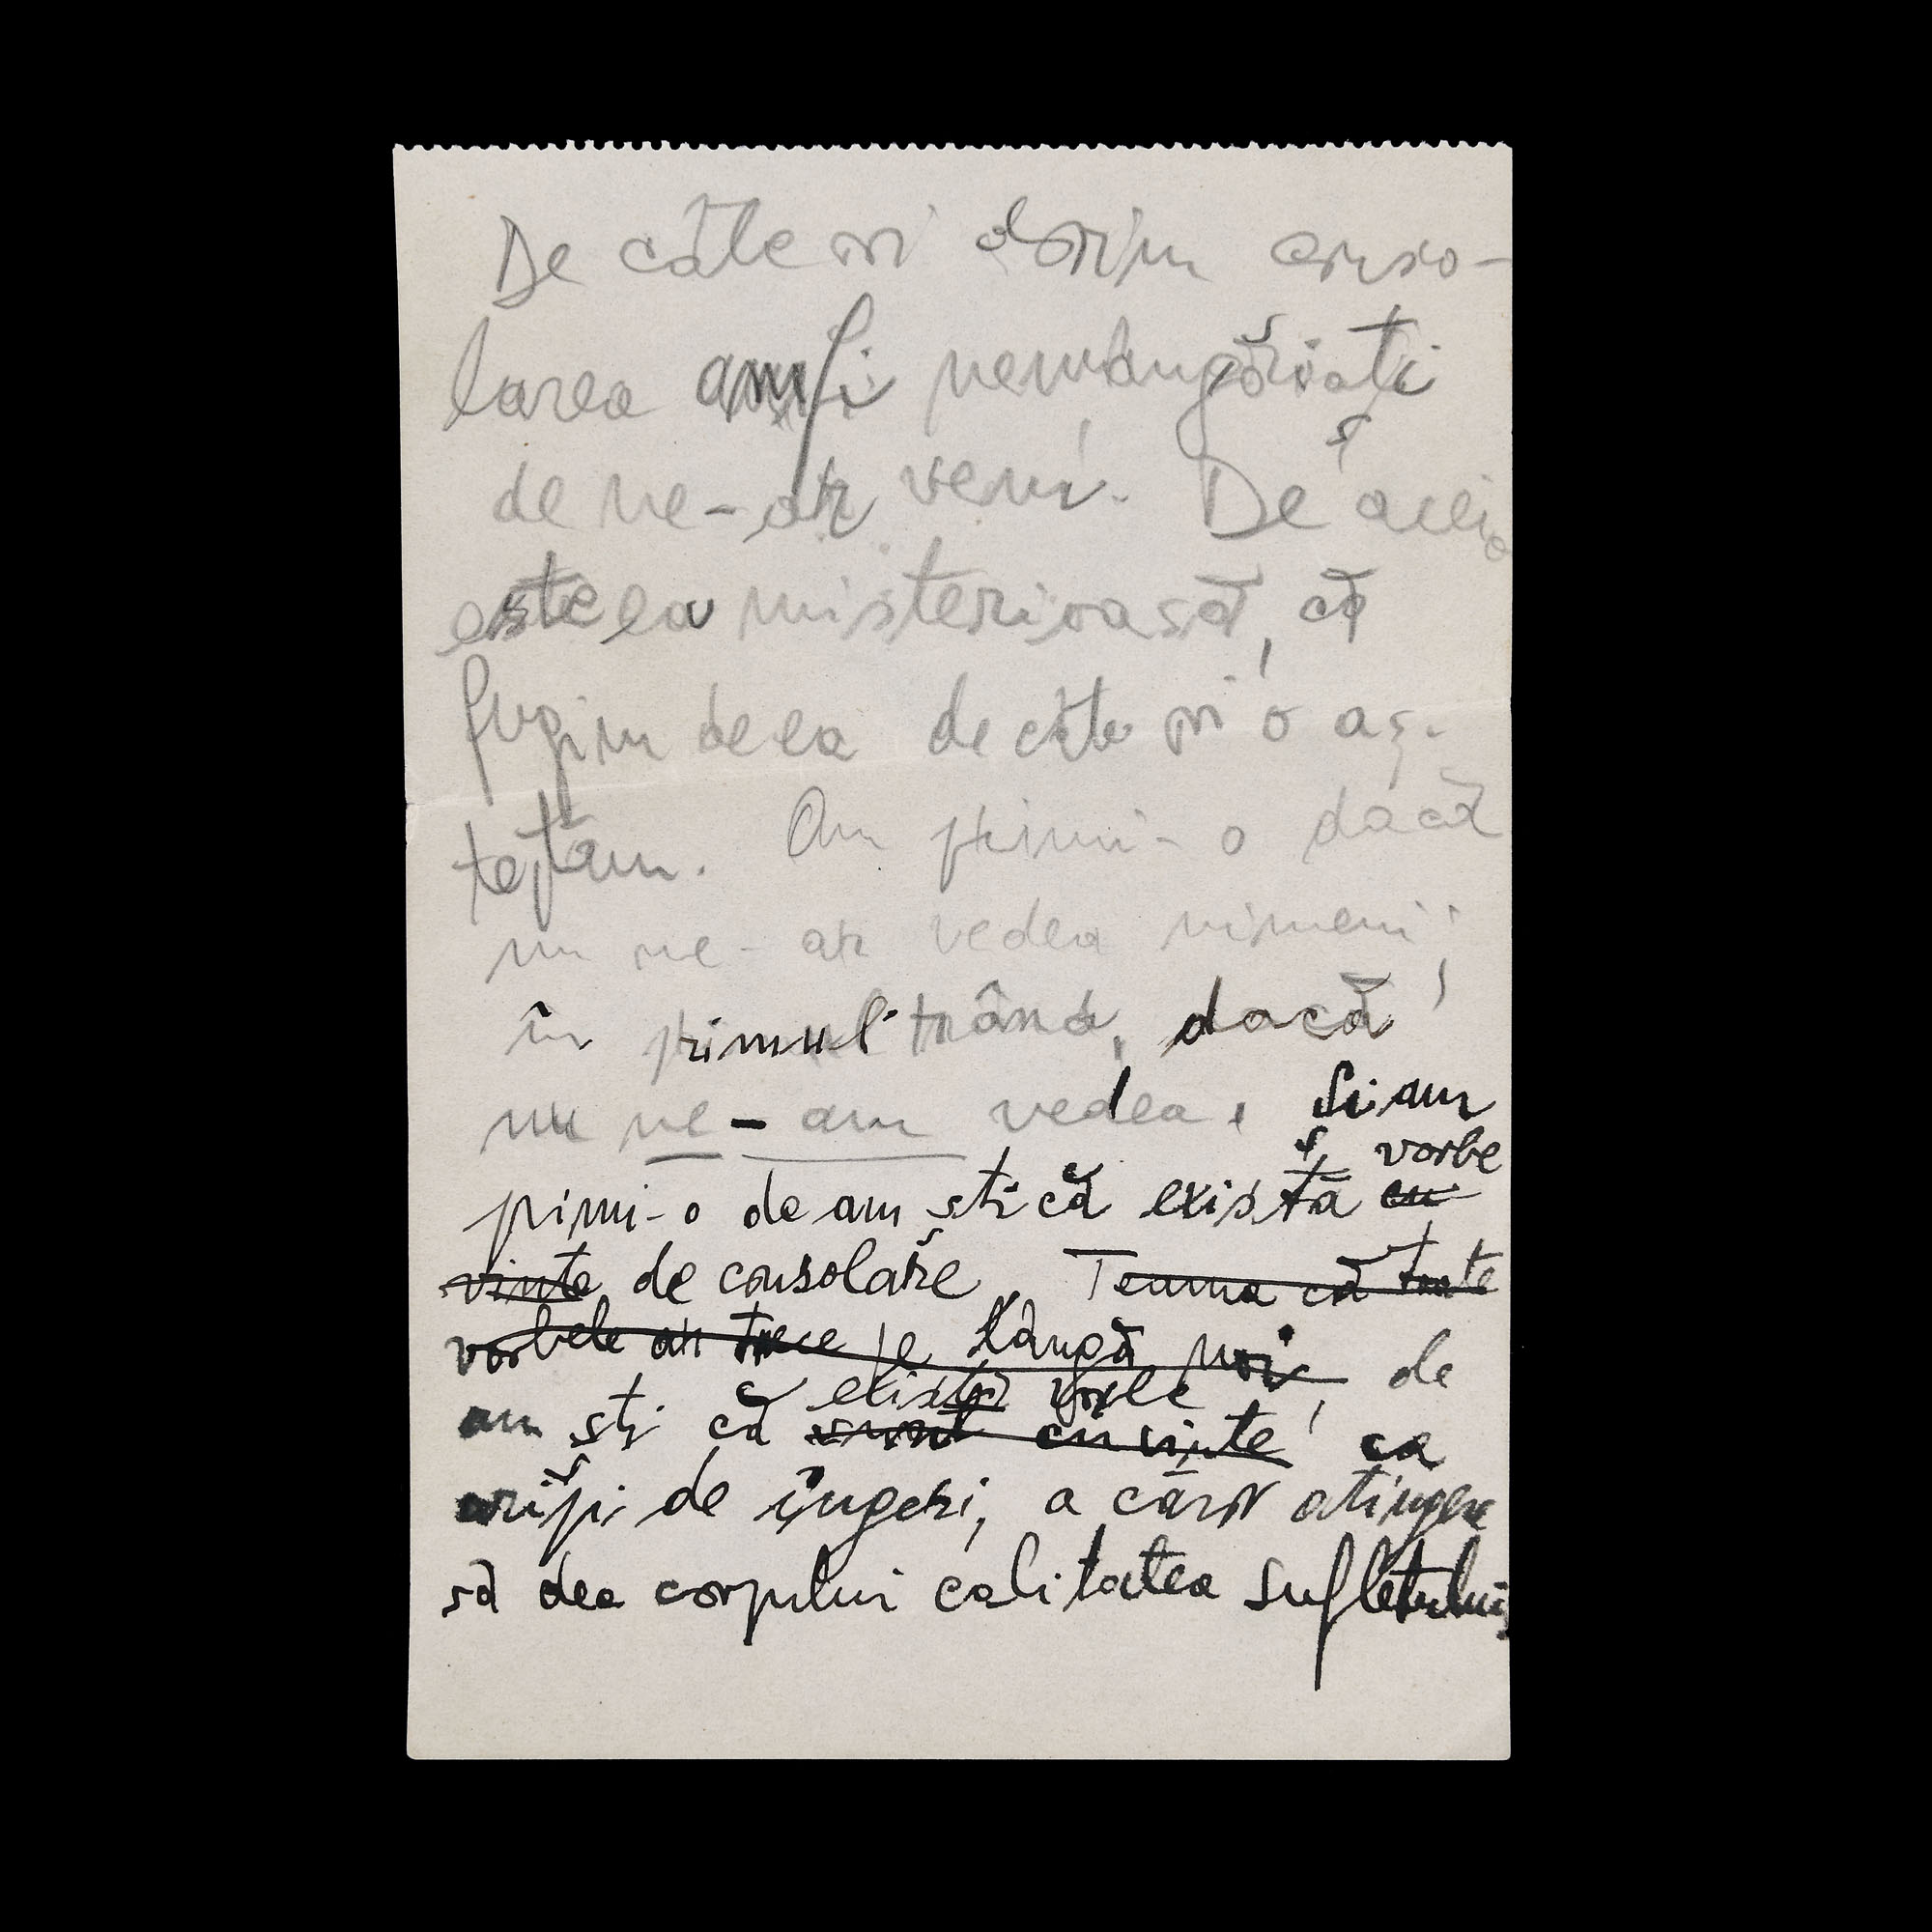 De câte ori dorim conso-
larea am fi nemângâiați
de ne-ar veni. De aceia
este ea misterioasă, că
fugim de ea de câte ori o aș-
teptăm. Am primi-o dacă
nu ne-ar vedea nimeni;
în primul rând, dacă
nu ne-am vedea. Și am
vorbe
primi-o de am ști că există cu
vinte de consolare. Teama că toate
vorbele ar trece pe lângă noi, de
există vorbe
am ști că sunt cuvinte, ca
aripi de îngeri, a căror atingere
să dea corpului calitatea sufletului,